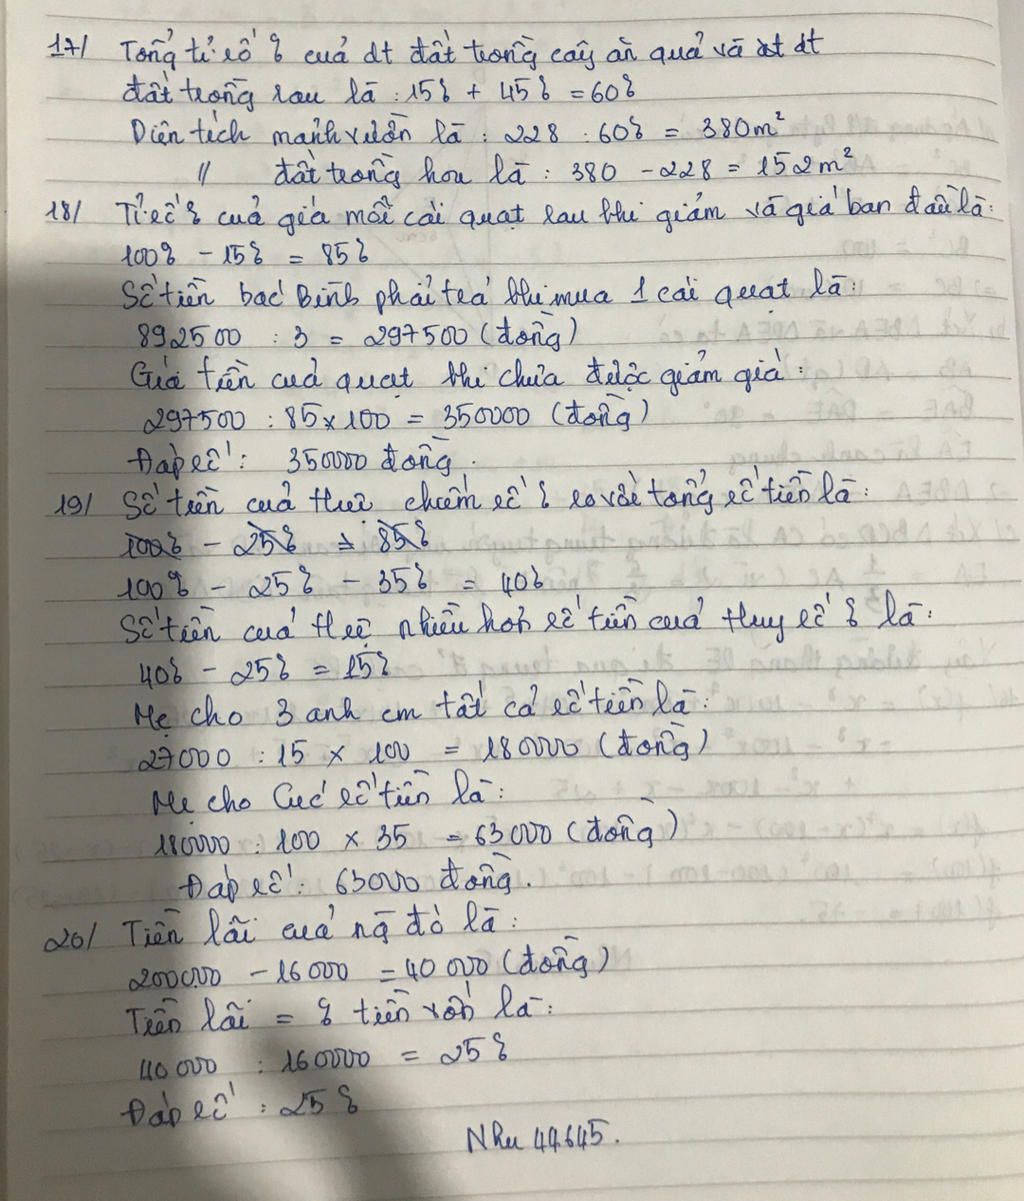 17/ Tổng tỉ số % của dt đất trồng cây ăn quả và dt
đất trồng rau là : 15% + 45% = 60%
Diện tích mảnh vườn là : 228 : 60% = 380m²
// đất trồng hoa là : 380 - 228 = 152m²
18/ Tỉ số % của giá mỗi cái quạt sau khi giảm và giá ban đầu là:
100% - 15% = 85%
Số tiền bác Bình phải trả khi mua 1 cái quạt là:
892500 : 3 = 297500 (đồng)
Giá tiền của quạt khi chưa được giảm giá :
297500 : 85 x 100 = 350000 (đồng)
Đáp số : 350000 đồng .
19/ Số tiền của Huệ chiếm số % so với tổng số tiền là :
100% - 25% = 85%
100% - 25% - 35% = 40%
Số tiền của Huệ nhiều hơn số tiền của Huy số % là :
40% - 25% = 15%
Mẹ cho 3 anh em tất cả số tiền là :
27000 : 15 x 100 = 180000 (đồng)
Mẹ cho Cúc số tiền là :
180000 : 100 x 35 = 63000 (đồng)
Đáp số : 63000 đồng .
20/ Tiền lãi của ng đó là :
200000 - 16000 = 40 000 (đồng)
Tiền lãi = % tiền vốn là :
40 000 : 160000 = 25%
Đáp số : 25%
Nhu 44645.